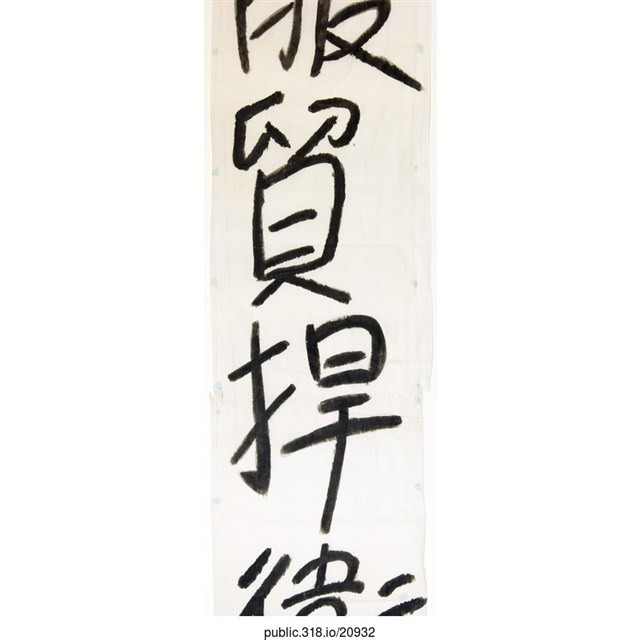 服貿捍衛
public.318.io/20932